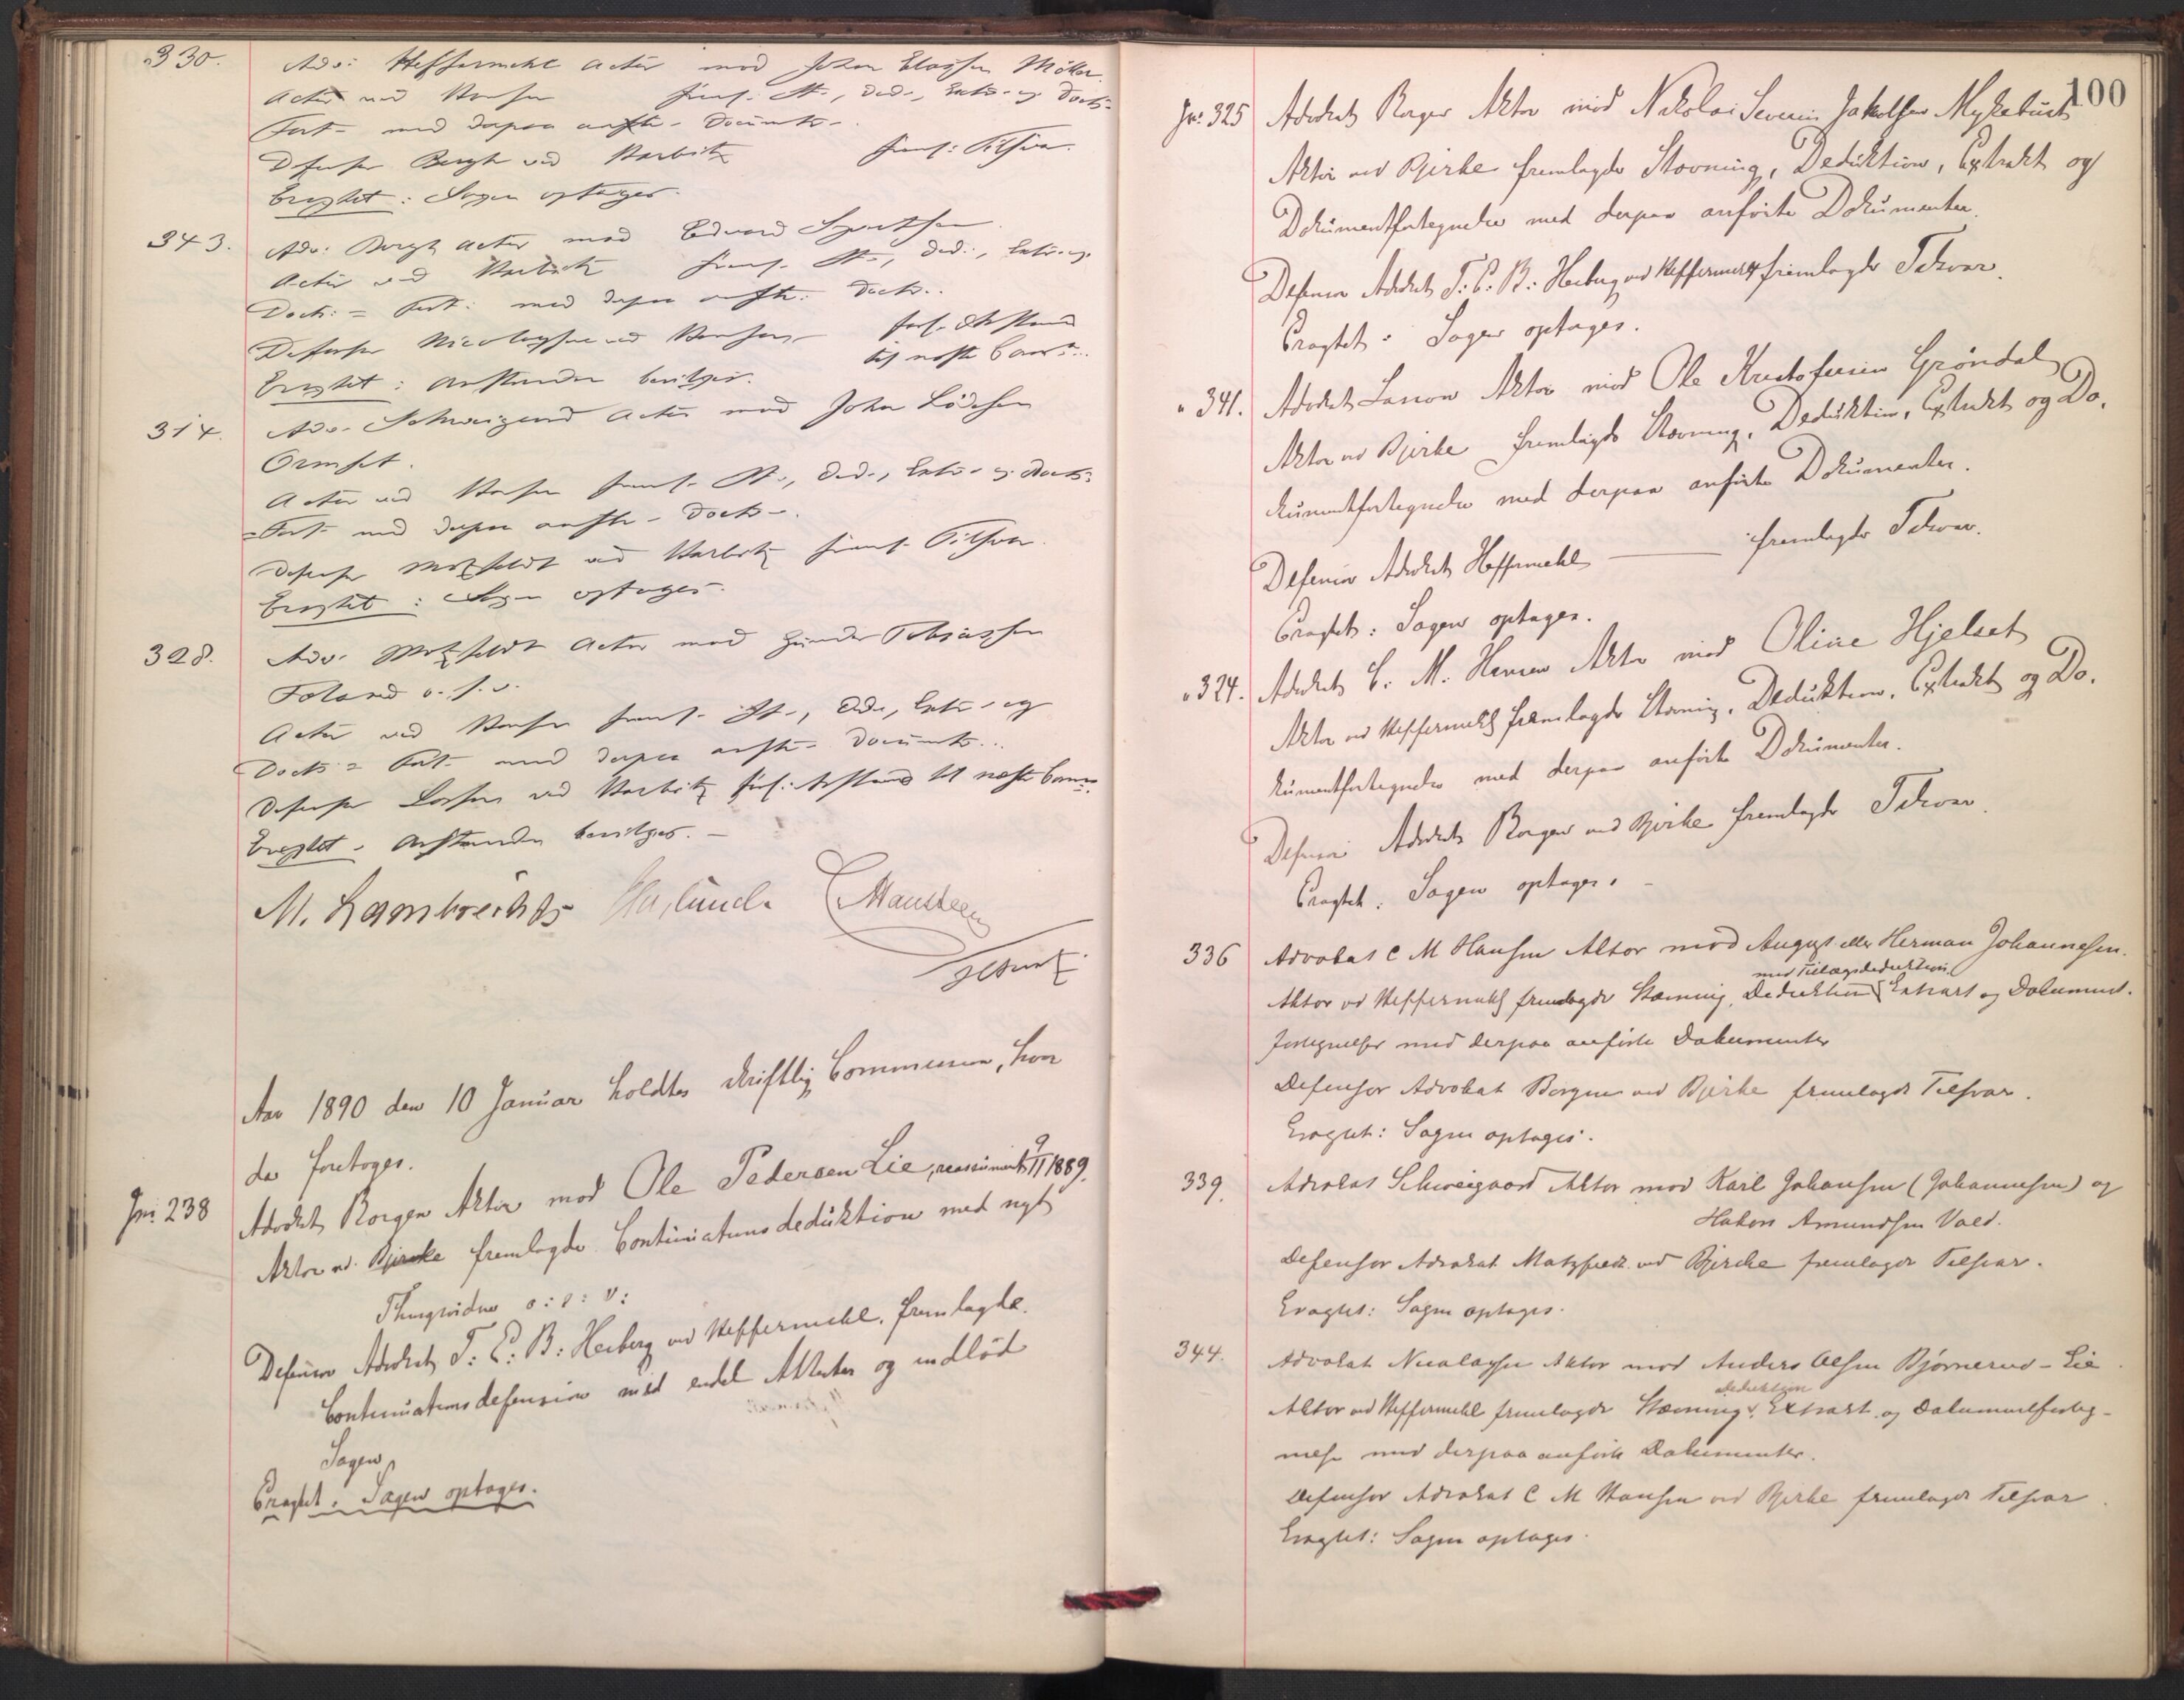 330. Adv: Heffermehl Actor mod Johan Möller.
Actor ved
Fort- med derpaa anfte- Documts-
Defensor Bergh ved Harbitz freml: Tilsvar.
Eragtet: Sagen optages.
343. Adv: Bergh Actor mod Edvard
Actor ved Harbitz freml. St-, Ded:, Extr- og
Docts: = Fort: med derpaa anfte: Docts..
Defensor Nicolaysen ved forl. Anstand
til næste Comn..
Eragtet: Anstanden bevilges.
314. Adv. Schweigaard Actor mod John
Ormset.
Actor ved freml. St., Ded., Extr- og Docts=
=Fort- med derpaa anfte- Docts-.
Defensor Motzfeldt ved Harbitz freml. Tilsvar.
Eragtet: Sagen optages.
328. Adv. Motzfeldt Actor mod Gunder Tobiassen
Foland o. s. v.
Actor ved freml. St-, Ded-, Extr- og
Docts = Fort- med derpaa anfte- Documts...
Defensor ved Harbitz forl. Anstand til næste Comn.
Eragtet. Anstanden bevilges. -
M. Lambrechts
Aar 1890 den 10 Januar holdtes skriftlig Commission, hvor
da foretoges.
Jn: 238 Advokat Borgen Aktor mod Ole Pedersen Lie, reassumert 9/11 1889.
Aktor ved Bjercke fremlagde Continuationsdeduktion med nyt
Thingsvidne o: s: v:
Defensor Advokat T: C: B: Herberg ved Heffermehl. fremlagde.
Continuationsdefension med endel Attester og indlod
Sagen
Eragtet. Sagen optages.
100
Jn: 325 Advokat Borgen Aktor mod Nikolai Severin Jakobsen Myklebust
Aktor ved Bjerke fremlagde Stævning, Deduktion, Extrakt og
Dokumentfortegnelse med derpaa anførte Dokumenter.
Defensor Advokat T: C: B: Herberg ved Heffermehl fremlagde Tilsvar.
Eragtet: Sagen optages.
" 341. Advokat Aktor mod Ole Kristofersen Gröndal
Aktor ved Bjerke fremlagde Stævning, Deduktion, Extrakt og Do-
kumentfortegnelse med derpaa anførte Dokumenter.
Defensor Advokat Heffermehl fremlagde Tilsvar.
Eragtet: Sagen optages.
" 324. Advokat C. M. Hansen Aktor mod Oline Hjelset
Aktor ved Heffermehl fremlagde Stævning, Deduktion, Extrakt og Do-
kumentfortegnelse med derpaa anførte Dokumenter.
Defensor Advokat Borgen ved Bjerke fremlagde Tilsvar.
Eragtet. Sagen optages.
336 Advokat C M Hansen Aktor mod August eller Herman Johannesen.
med Tillægsdeduktion
Aktor ved Heffermehl fremlagde Stævning, Deduktion Extract og Dokument-
fortegnelse med derpaa anførte Dokumenter
Defensor Advokat Borgen ved Bjerke fremlagde Tilsvar.
Eragtet: Sagen optages.
339. Advokat Schweigaard Aktor mod Karl Johansen (Johannesen) og
Hakon Amundsen Vold.
Defensor Advokat Motzfeldt ved Bjercke fremlagde Tilsvar.
Eragtet: Sagen optages.
344. Advokat Nicolaysen Aktor mod Anders Olsen Bjørnerud-Lie
Deduktion
Aktor ved Heffermehl fremlagde Stævning, Extract og Dokumentforteg-
nelse med derpaa anførte Dokumenter.
Defensor Advokat C M Hansen ved Bjerke fremlagde Tilsvar
Eragtet: Sagen optages.